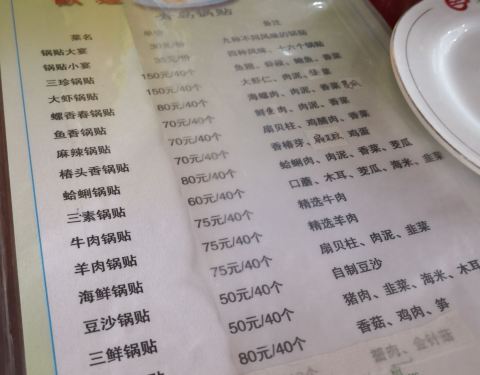 锅贴
菜名
锅贴大宴
锅贴小宴
三珍锅贴
大虾锅贴
螺香春锅贴
鱼香锅贴
麻辣锅贴
椿头香锅贴
蛤蜊锅贴
三素锅贴
牛肉锅贴
羊肉锅贴
海鲜锅贴
豆沙锅贴
三鲜锅贴
单价
30元/份
元/份
150元/40个
150元/40个
80元/40个
70元/40个
70元/40个
70元/40个
80元/40个
60元/40个
75元/40个
75元/40个
75元/40个
50元/40个
50元/40个
80元/40个
备注
九种不同风味的锅贴
四种风味、十六个锅贴
鱼翅、海参、鲍鱼、香菜
大虾仁、肉泥、韭菜
海螺肉、肉泥、香菜
鲜鱼肉、肉泥、香菜
扇贝柱、鸡脯肉、香菜
香椿芽、鸡蛋
蛤蜊肉、肉泥、香菜、茭瓜
口蘑、木耳、茭瓜、海米、韭菜
精选牛肉
精选羊肉
扇贝柱、肉泥、韭菜
自制豆沙
猪肉、韭菜、海米、木耳
香菇、鸡肉、笋
金针菇